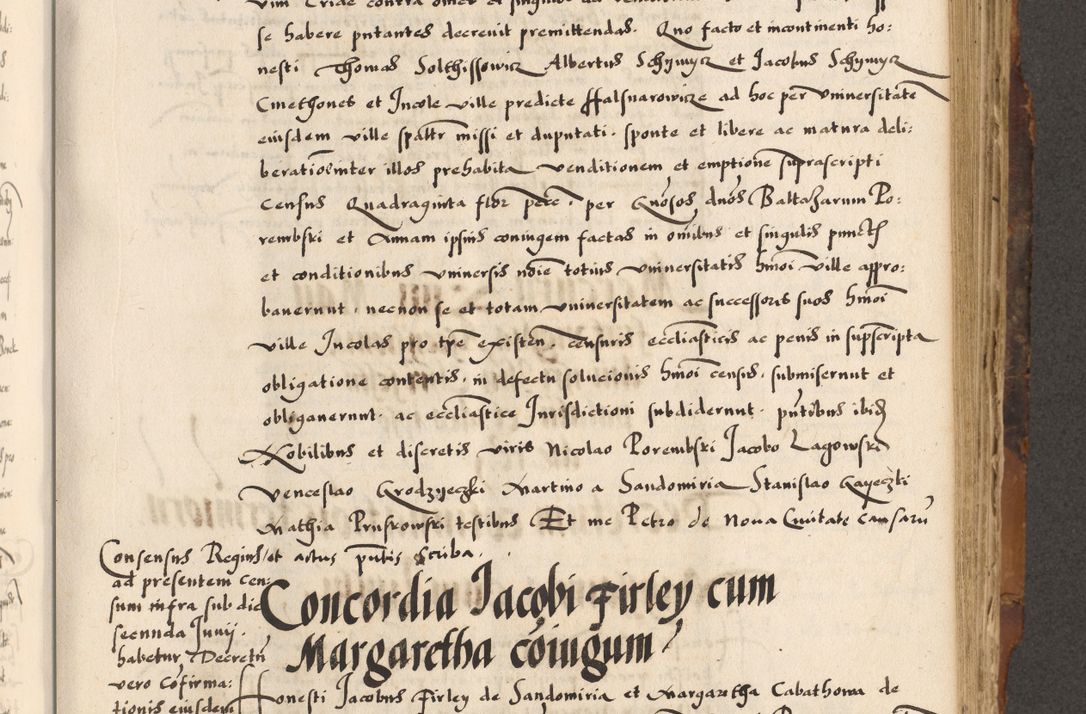 se habere putantes decreuit premittendas. Quo facto et incontinenti ho:
nesti Thomas Solthissowicz Albertus Schymycz et Jacobus Schymycz
Cmethones et Incole ville predicte ffalsnarowicze ad hoc per vniuersitatē
eiusdem ville spālr missi et duputati. sponte et libere ac matura deli:
beratiōe inter illos prehabita venditionem et emptionē suprascripti
census Quadraginta flor pecc. per Gn̄osos dn̄os Baltazarum Po:
rembski et Annam ipsius coniugem factas in om̄ibus et singulis punctis
et conditionibus vniuersis nōie totius vniuersitatis hm̄oi ville appro:
bauerunt. necnon se et totam vniuersitatem ac successores suos hm̄oi
ville Incolas pro tp̄e existen. censuris eccliāsticis ac penis in supscripta
obligatione contentis. in defectu solucionis hm̄oi census. submiserunt et
obligauerunt. ac eccliāstice Iurisdictioni subdiderunt. pn̄tibus ibid
Nobilibus et discretis viris Nicolao Porembski Jacobo Lagowski
Venceslao Grodzyeczki Martino a Sandomiria Stanislao Gayeczki
Mathia Pruskowski testibus Et me Petro de Noua Ciuitate causarū
et actus pn̄tis scriba.
Consensus Regius
ad presentem cen:
sum infra sub die
secunda Junij.
habetur Decretū
vero cōfirma:
tionis eiusdem
Concordia Jacobi Firley cum
Margaretha cōiugum
Honesti Jacobus Firley de Sandomiria et Margaretha Cabathowa de